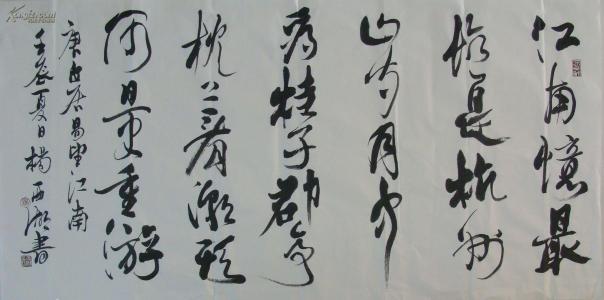 江南憶最
憶是杭州
山寺月中
尋桂子郡亭
枕上看潮頭
何日更重游
唐白居易望江南
壬辰夏日楊西湖書